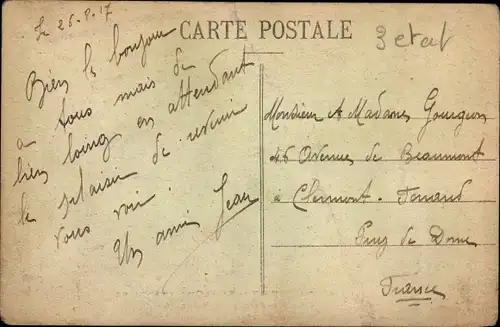 Le 26-8-17
CARTE POSTALE
3 etat
Bien le bonjour
a tous mais de
bien loing en attendant
le plaisir de revenir
vous voir.
Un ami Jean
Monsieur & Madame Gourgeon
46 Avenues de Beaumont
a Clermont-Ferrand
Puy de Dome
France